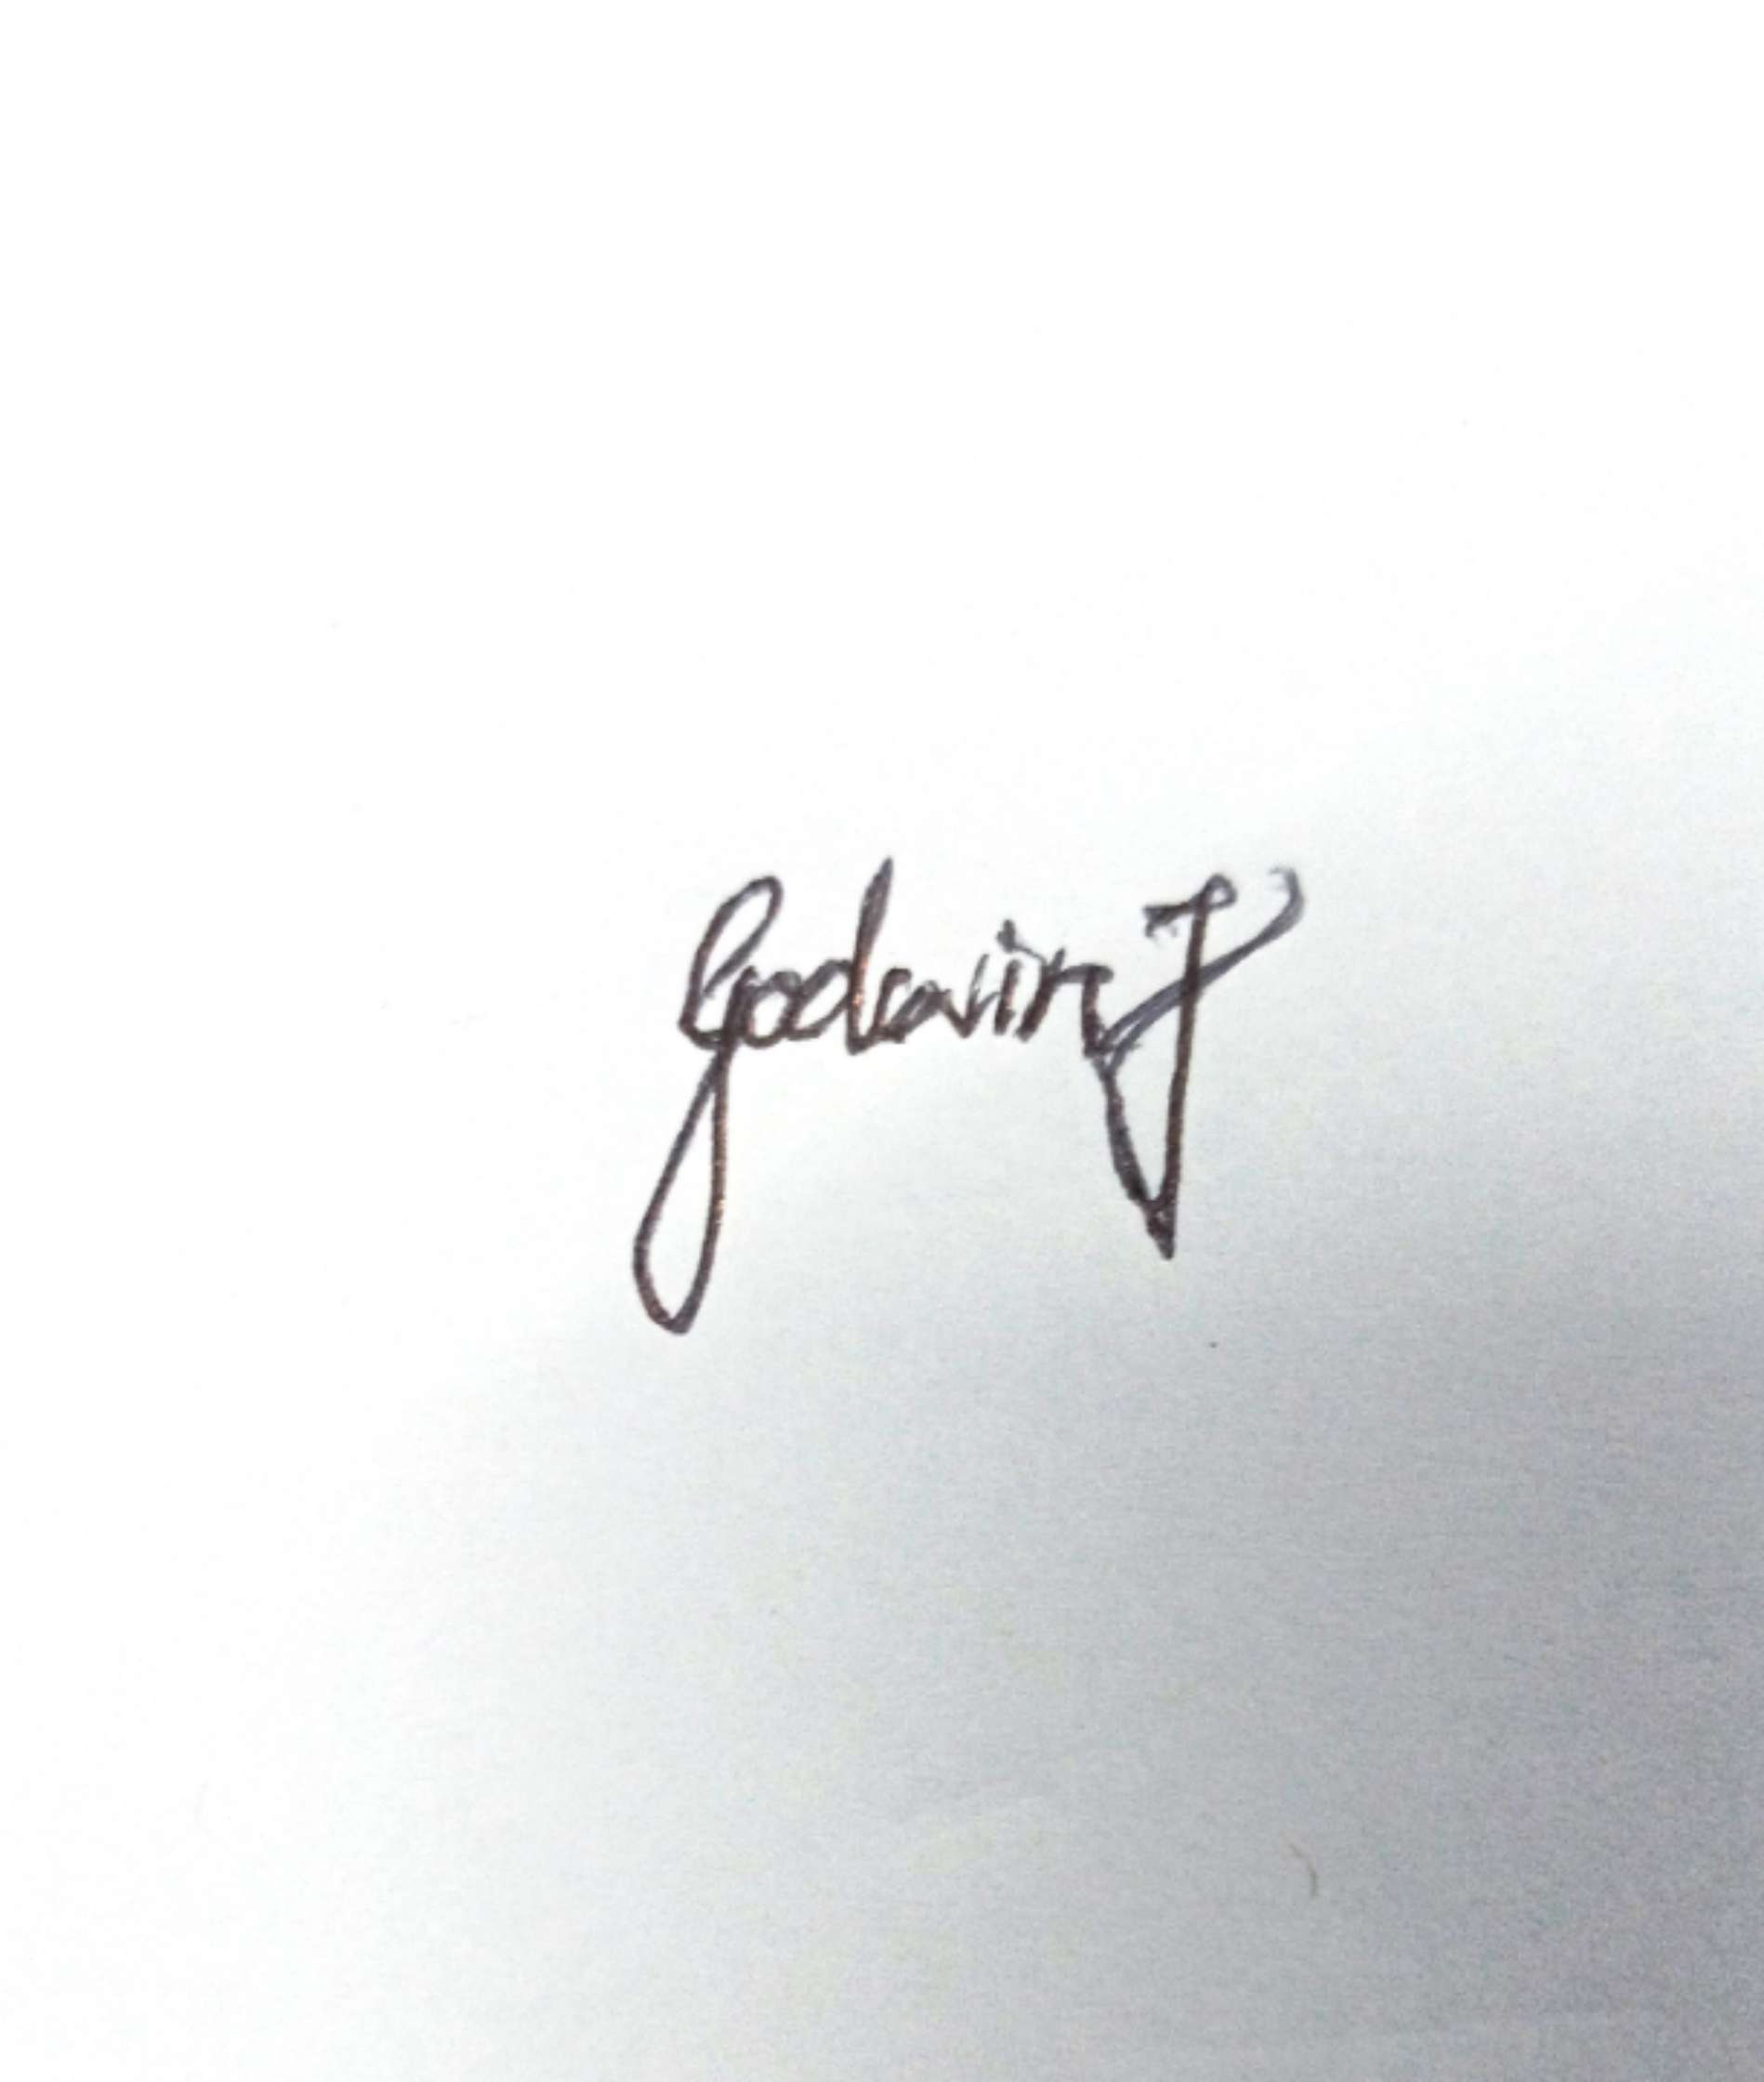 Godwin J